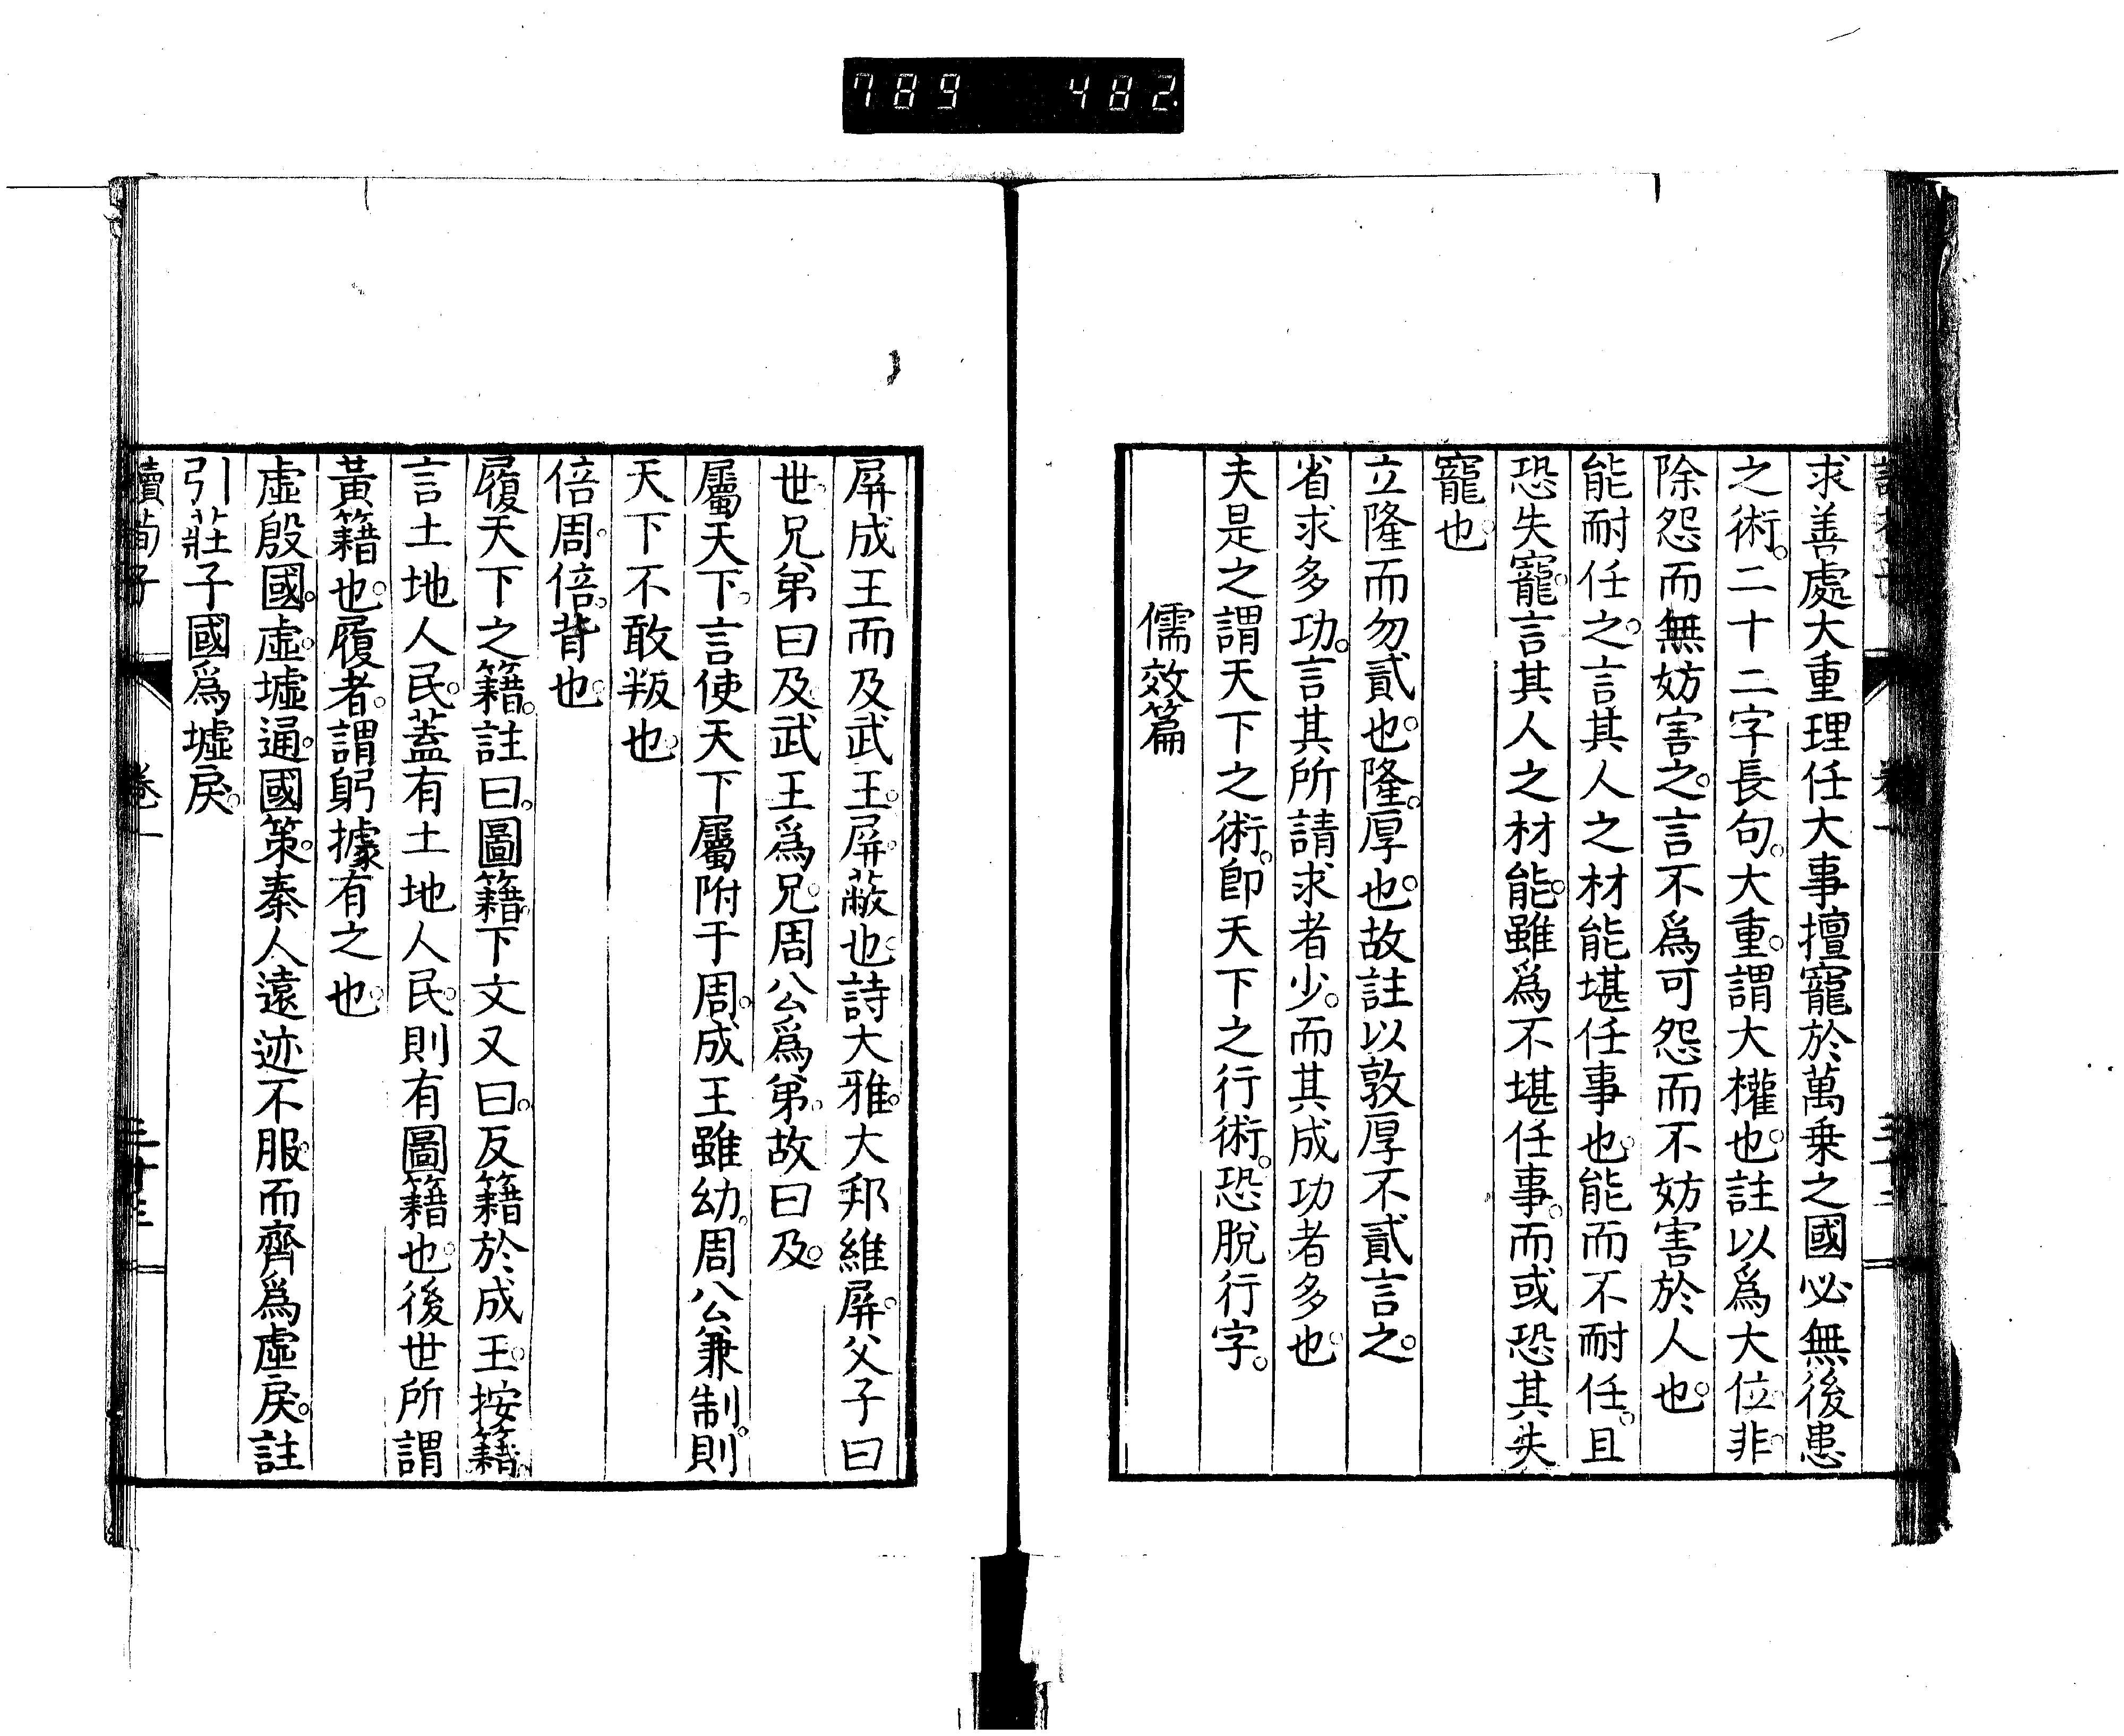 789 482
求善處大重理任大事擅寵於萬乗之國必無後患
之術。二十二字長句。大重。謂大權也。註以爲大位。非。
除怨而無妨害之。言不爲可怨而不妨害於人也。
能耐任之。言其人之材能能堪任事也。能而不耐任。且
恐失寵。言其人之材能。雖爲不堪任事。而或恐其失
寵也。
立隆而勿貳也。隆。厚也。故註以敦厚不貳言之。
省求多功。言其所請求者少。而其成功者多也。
夫是之謂天下之術。卽天下之行術。恐脫行字。
儒效篇
屏成王而及武王。屏。蔽也。詩大雅。大邦維屏。父子曰
世。兄弟曰及。武王爲兄。周公爲弟。故曰及。
屬天下。言使天下屬附于周。成王雖幼。周公兼制。則
天下不敢叛也。
倍周。倍。背也。
履天下之籍。註曰。圖籍。下文又曰。反籍於成王。按籍。
言土地人民。蓋有土地人民。則有圖籍也。後世所謂
黃籍也。履者。謂躬據有之也。
虛殷國。虛。墟通。國策。秦人遠迹不服。而齊爲虛戾。註
引莊子國爲墟戾。
讀荀子 卷一